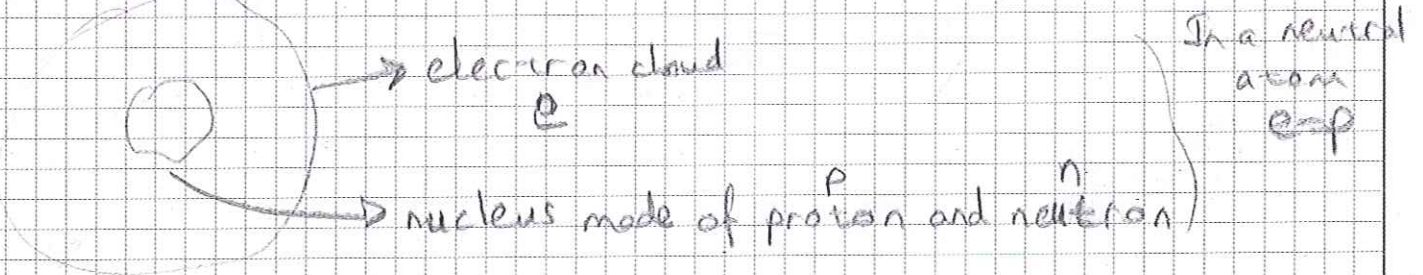 electron cloud
e
p n
nucleus made of proton and neutron
In a neutral
atom
e=p